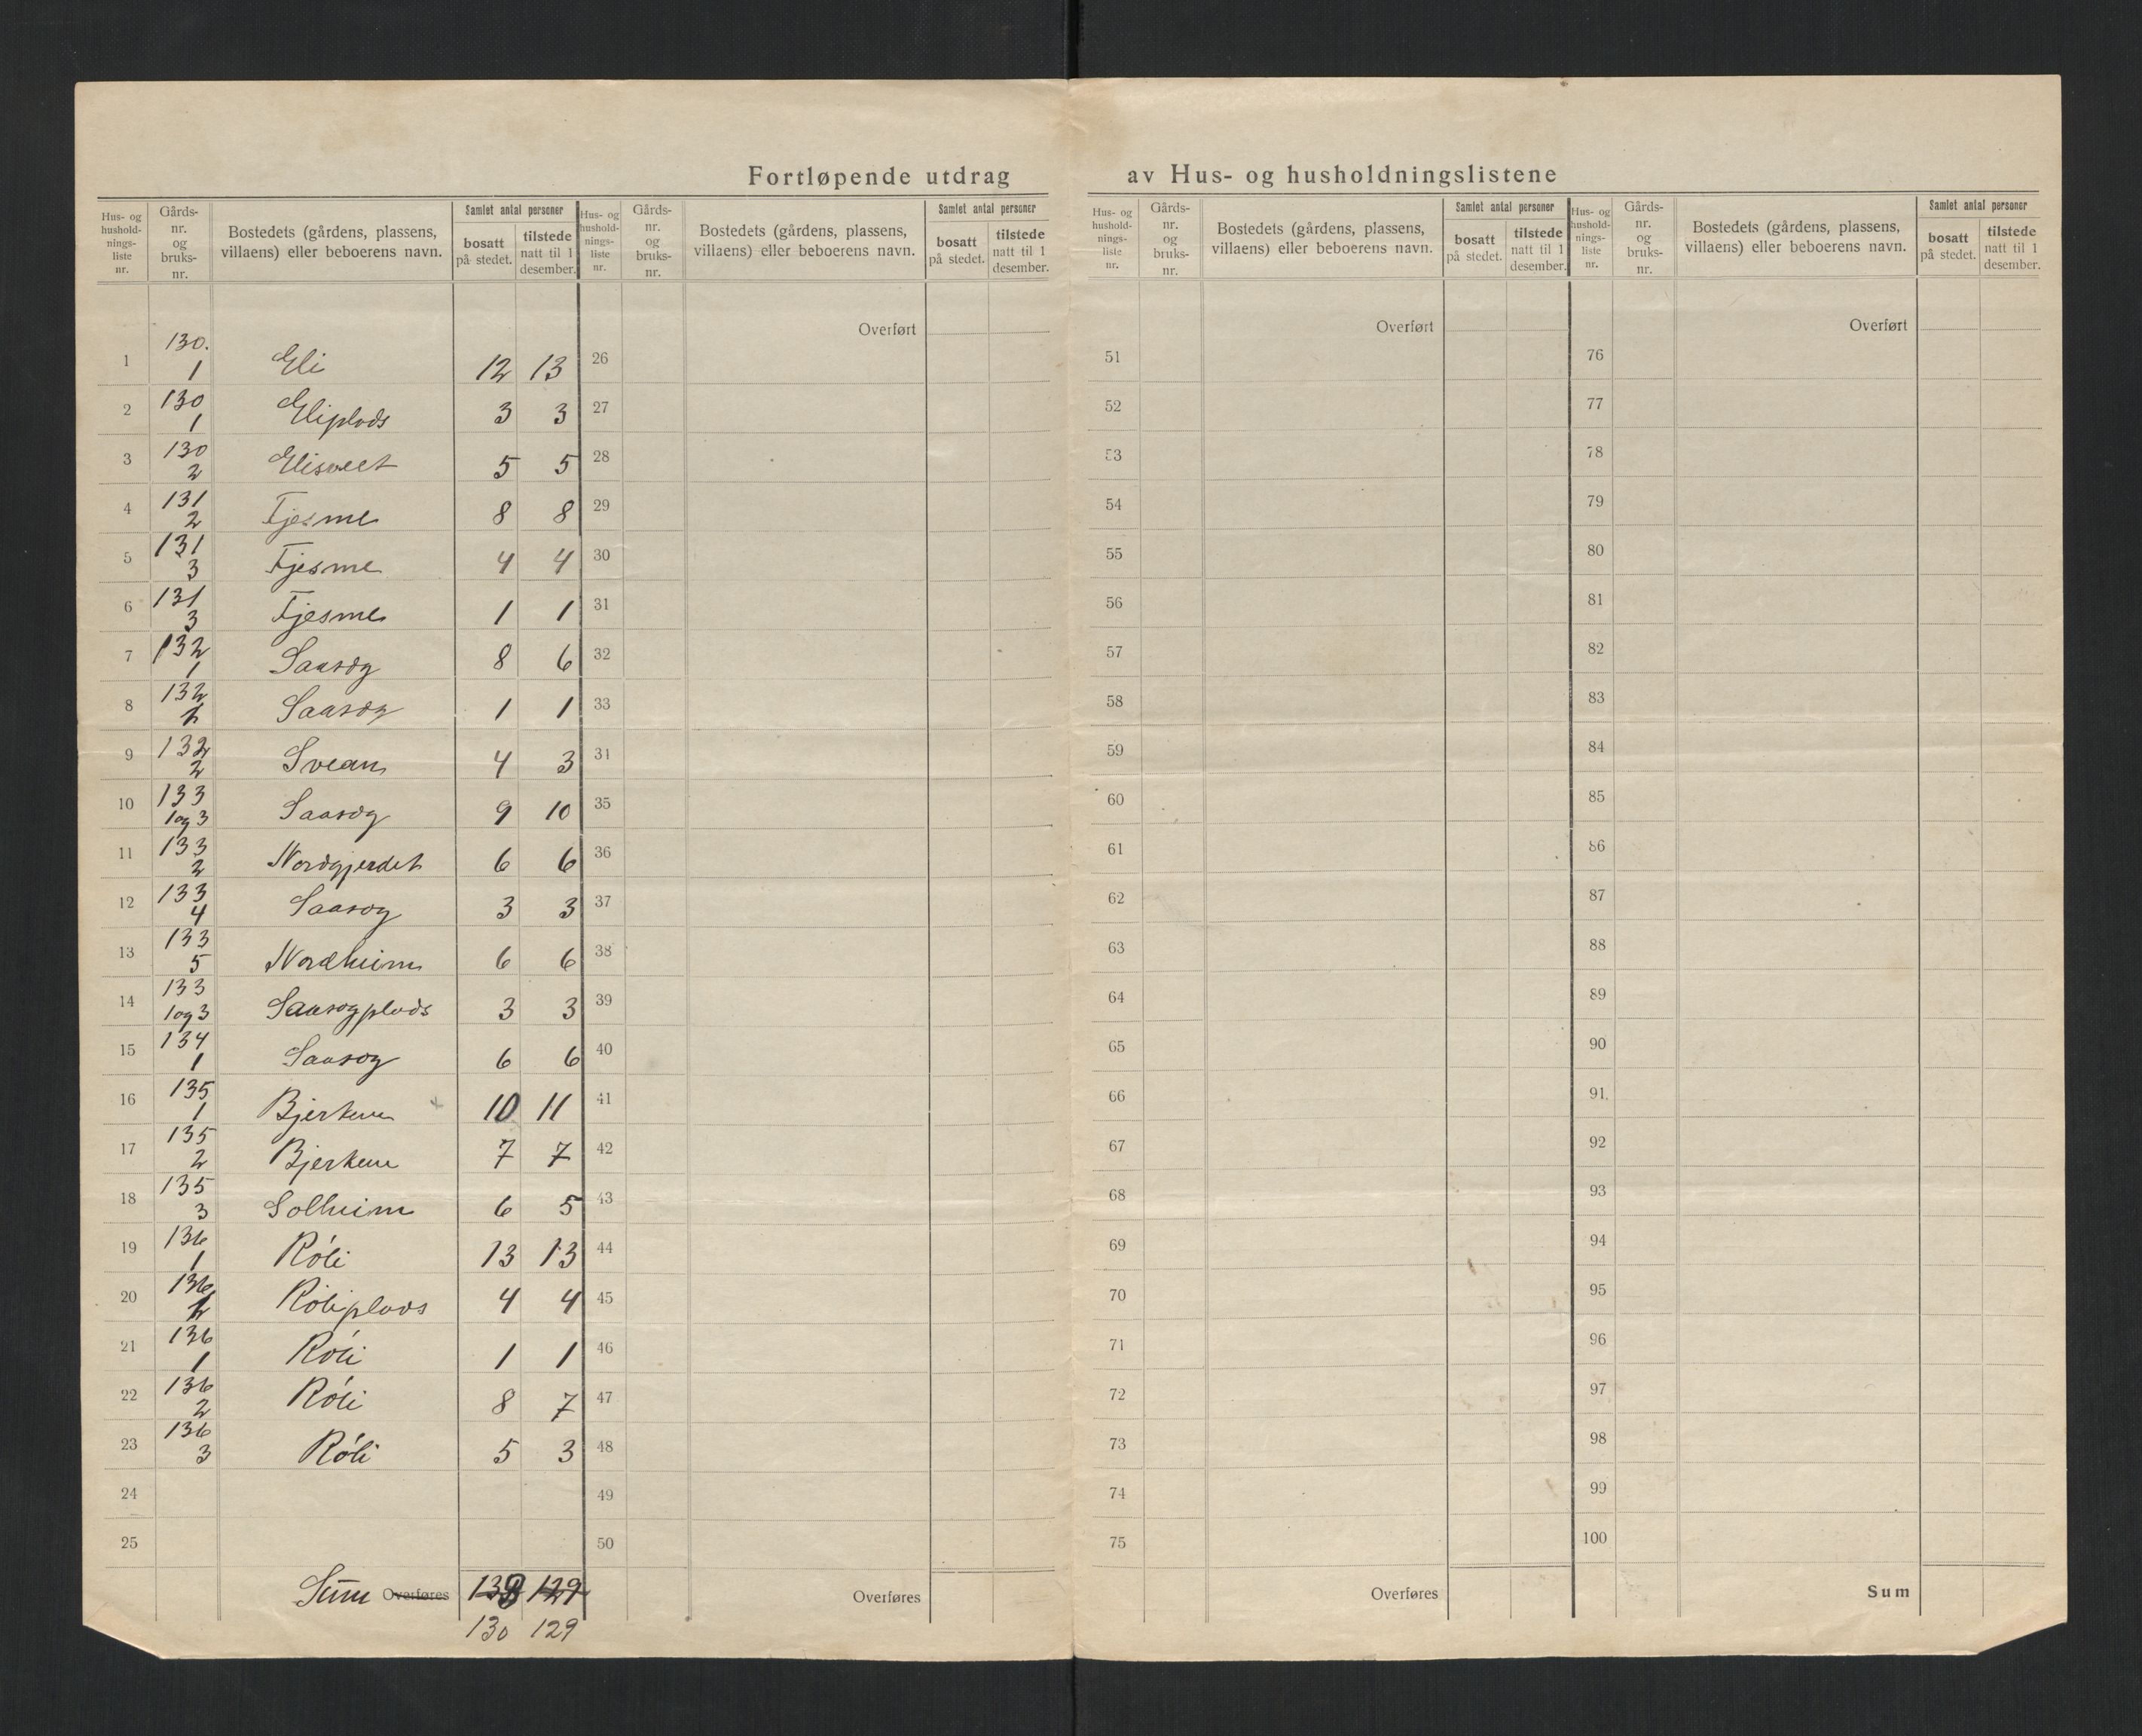 Fortløpende utdrag av Hus- og husholdningslistene
Hus- og hushold-nings-liste nr. Gårds-nr. og bruks-nr. Bostedets (gårdens, plassens, villaens) eller beboerens navn. Samlet antal personer bosatt på stedet. tilstede natt til 1 desember.
1 130. 1 Eli 12 13
2 130 1 Eliplads 3 3
3 130 2 Elisveet 5 5
4 131 2 Fjesme 8 8
5 131 3 Fjesme 4 4
6 131 3 Fjesme 1 1
7 132 1 Saasøg 8 6
8 132 Saasøg 1 1
9 132 2 Svean 4 3
10 133 1og3 Saasøg 9 10
11 133 2 Nordgjerdet 6 6
12 133 4 Saasøg 3 3
13 133 5 Nordheim 6 6
14 133 1og3 Saasøgplads 3 3
15 134 1 Saasøg 6 6
16 135 1 Bjerken 10 11
17 135 2 Bjerken 7 7
18 135 3 Solheim 6 5
19 136 1 Róli 13 13
20 136 Róliplads 4 4
21 136 1 Róli 1 1
22 136 2 Róli 8 7
23 136 3 Róli 5 3
24
25
Sum Overføres 129
130 129
Hus- og hushold-nings-liste nr. Gårds-nr. og bruks-nr. Bostedets (gårdens, plassens, villaens) eller beboerens navn. Samlet antal personer bosatt på stedet. tilstede natt til 1 desember.
Overført
26
27
28
29
30
31
32
33
31
35
36
37
38
39
40
41
42
43
44
45
46
47
48
49
50
Overføres
Hus- og hushold-nings-liste nr. Gårds-nr. og bruks-nr. Bostedets (gårdens, plassens, villaens) eller beboerens navn. Samlet antal personer bosatt på stedet. tilstede natt til 1 desember.
Overført
51
52
53
54
55
56
57
58
59
60
61
62
63
64
65
66
67
68
69
70
71
72
73
74
75
Overføres
Hus- og hushold-nings-liste nr. Gårds-nr. og bruks-nr. Bostedets (gårdens, plassens, villaens) eller beboerens navn. Samlet antal personer bosatt på stedet. tilstede natt til 1 desember.
Overført
76
77
78
79
80
81
82
83
84
85
86
87
88
89
90
91.
92
93
94
95
96
97
98
99
100
Sum